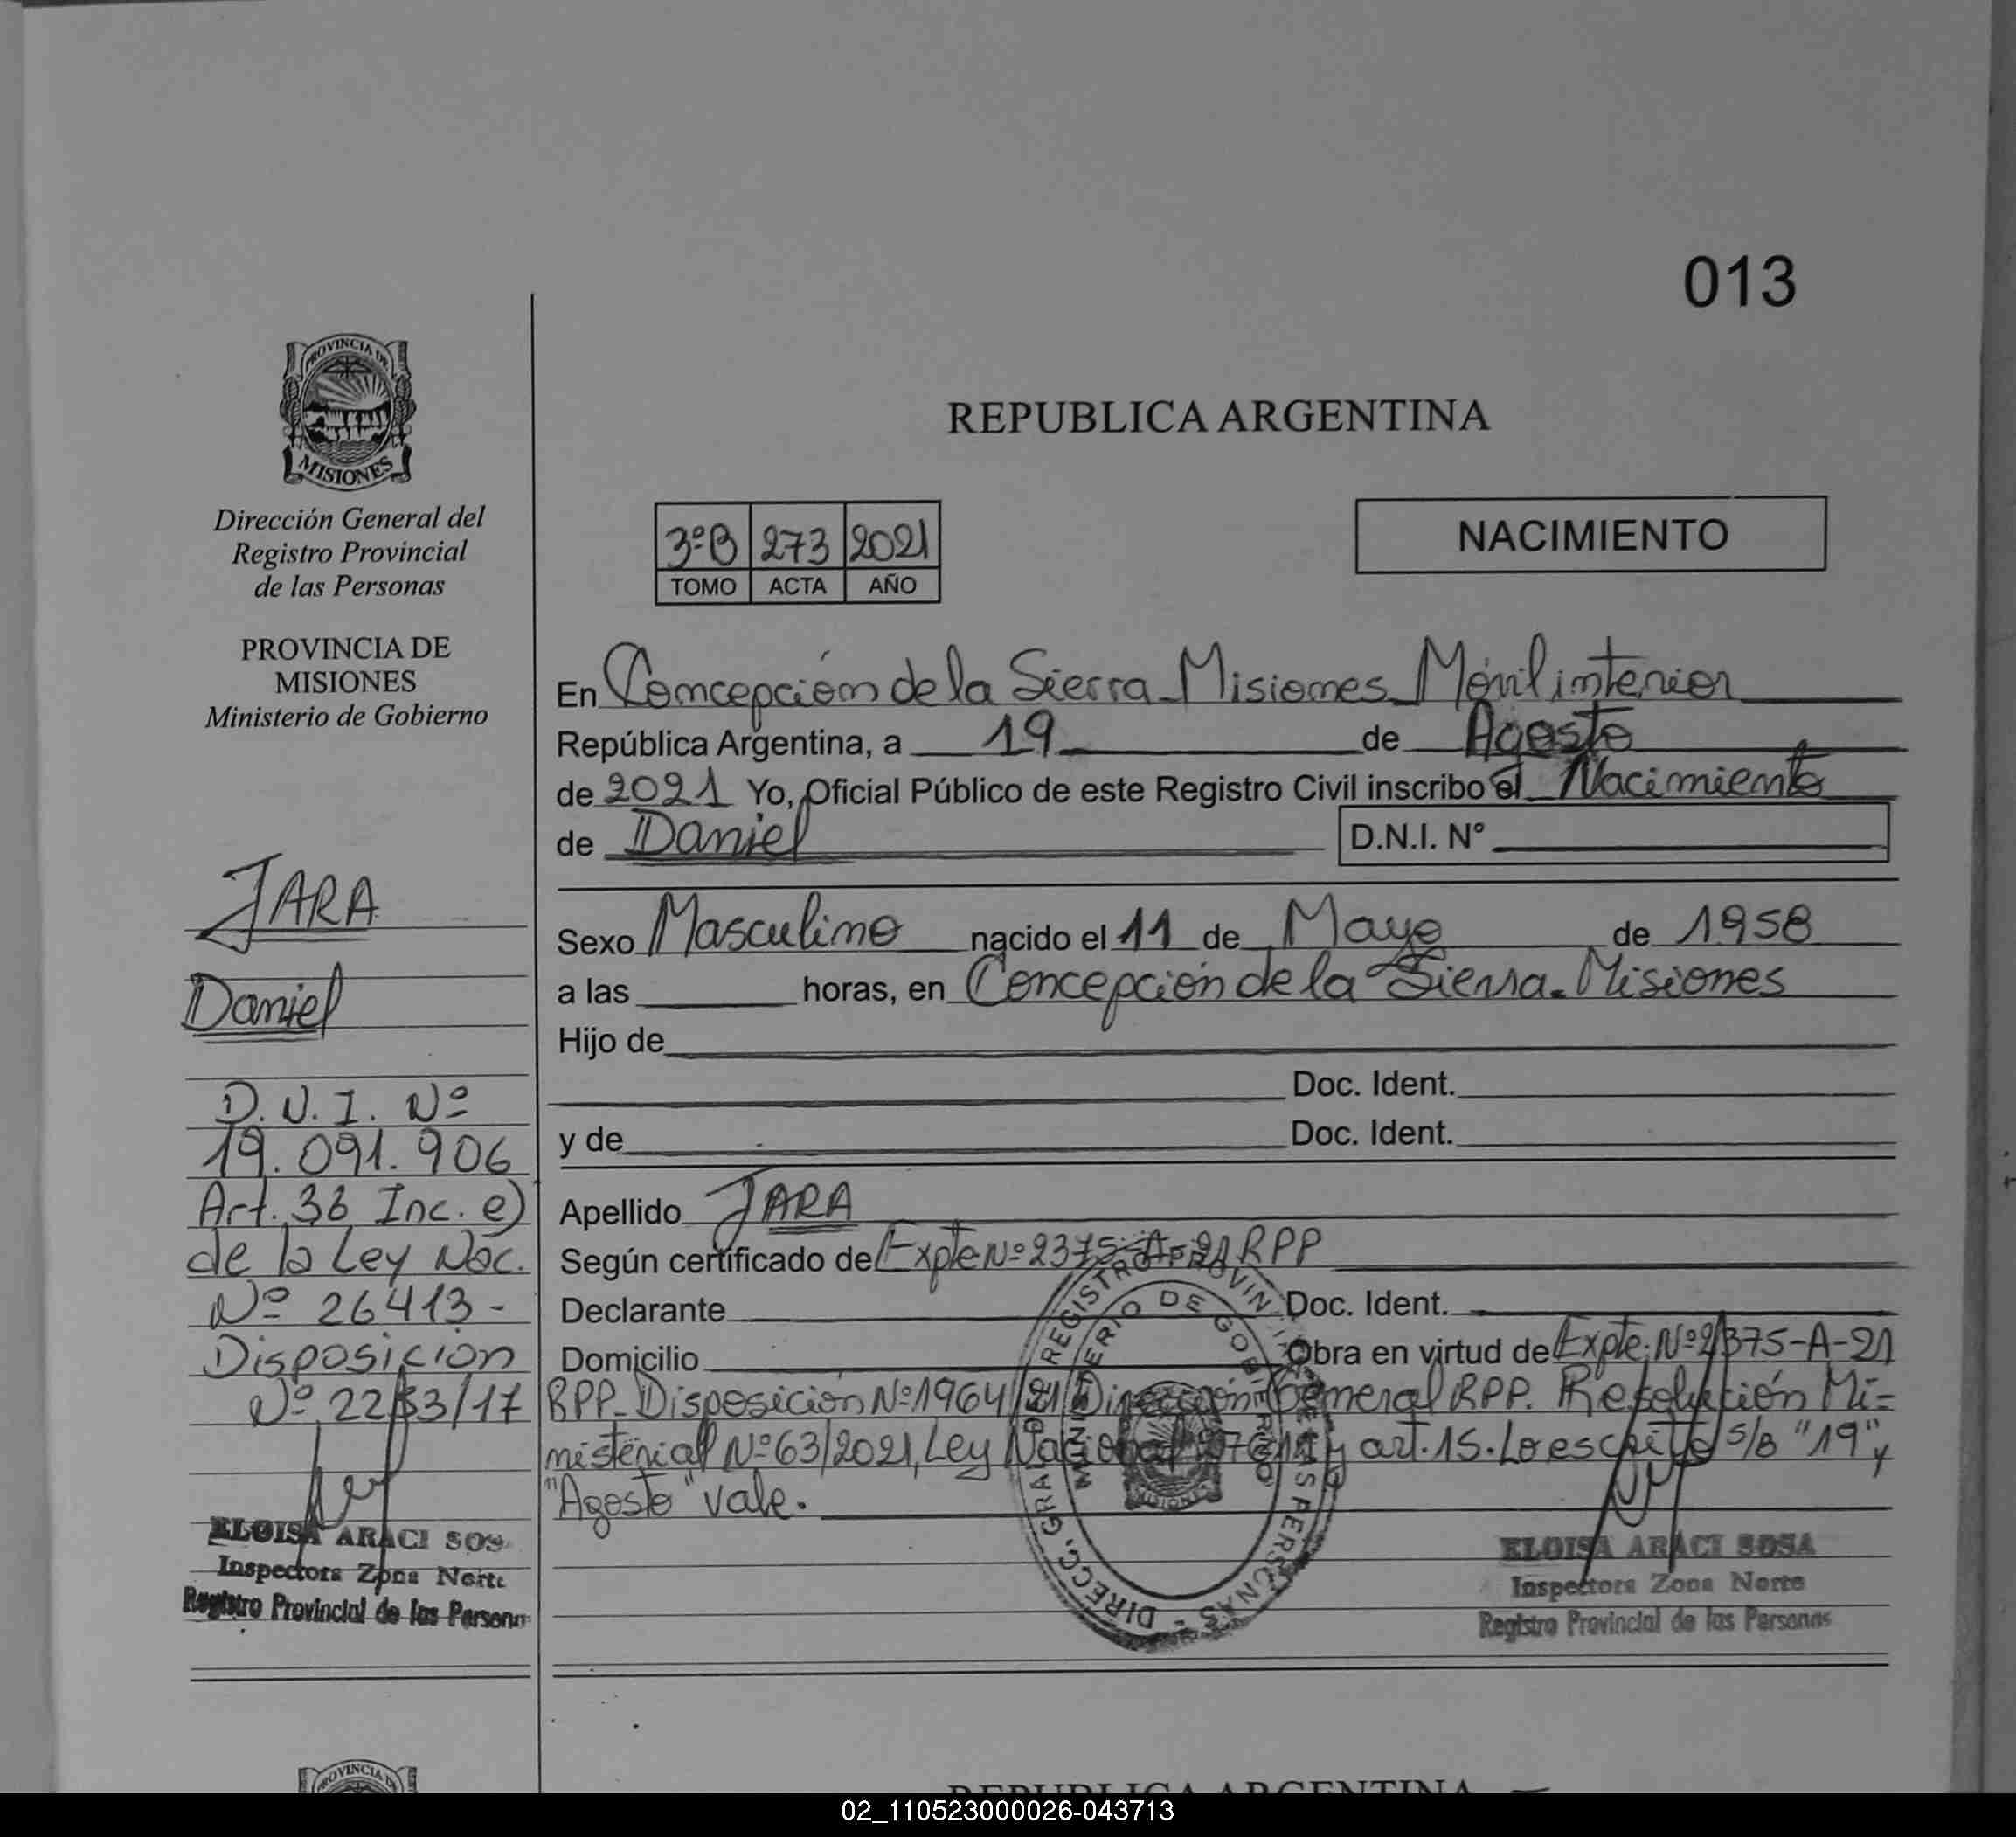 013
PROVINCIA DE
MISIONES
Dirección General del
Registro Provincial
de las Personas
PROVINCIA DE
MISIONES
Ministerio de Gobierno
JARA
Daniel
D.N.I. Nº
19.091.906
Art. 36 Inc. e)
de la Ley Nac.
Nº 26413-
Disposicion
Nº 2283/17
ELOISA ARACI SOS
Inspectora Zona Norte
Registro Provincial de las Persona
REPUBLICA ARGENTINA
3ºB 273 2021
TOMO ACTA AÑO
NACIMIENTO
En Concepción de la Sierra_Misiones_Móvil interior
República Argentina, a 19 de Agosto
de 2021 Yo, Oficial Público de este Registro Civil inscribo el Nacimiento
de Daniel D.N.I. Nº
Sexo Masculino nacido el 11 de Mayo de 1958
a las horas, en Concepción de la Sierra. Misiones
Hijo de
Doc. Ident.
y de Doc. Ident.
Apellido JARA
Según certificado de Expte Nº 2375-A-21 RPP
Declarante Doc. Ident.
Domicilio Obra en virtud de Expte. Nº 2375-A-21
RPP_Disposición Nº 1964/21 Dirección General RPP. Resolución Mi=
nisterial Nº 63/2021, Ley Nacional art. 15. Lo escrito s/B "19" y
"Agosto" vale.
DIRECC. GRAL. DE REGISTRO PROVIN PERSONAS
MINISTERIO DE GOBIERNO
MISIONES
ELOISA ARACI SOSA
Inspectora Zona Norte
Registro Provincial de las Personas
PROVINCIA D
REPUBLICA ARGENTINA
02_110523000026-043713